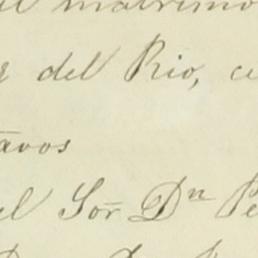 el matrimo
r del Rio, ce
avos
el Sor Dn Pe